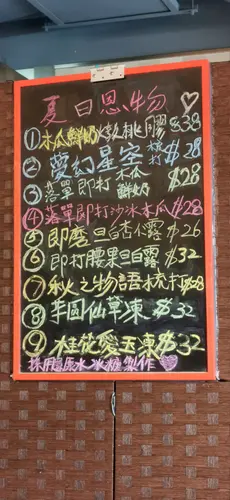 夏日恩物♡
①木瓜鮮奶燉桃膠$38
②夢幻星空梳打$28
③落單即打木瓜鮮奶$28
④落單即打沙冰木瓜$28
⑤即磨旦白杏露$26
⑥即打腰果旦白露$32
⑦秋之物語梳打$28
⑧芋圓仙草凍$32
⑨桂花愛玉凍$32
採用原水冰糖製作